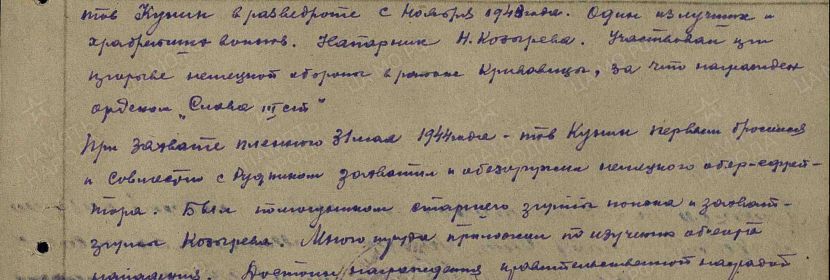 тов Кунин в разведроте с Ноября 1943 года. Один из лучших и
храбрейших воинов. Напарник Н. Козырева. Участвовал при
прорыве немецкой обороны в районе Кривавицы, за что награжден
орденом „Слава III ст"
При захвате пленного 31 мая 1944 года - тов Кунин первым бросился
и совместно с Рудником захватил и обезоружил немецкого обер-ефрей-
тора. Был помощником старшего группы поиска и захват-
группы Козырева. Много труда приложил по изучению объекта
нападения. Достоин награждения правительственной наградой